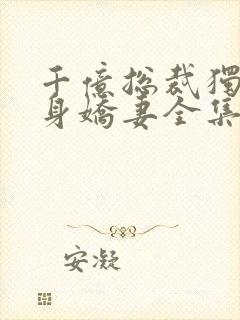 千億総裁獨
身嬌妻全集
安凝